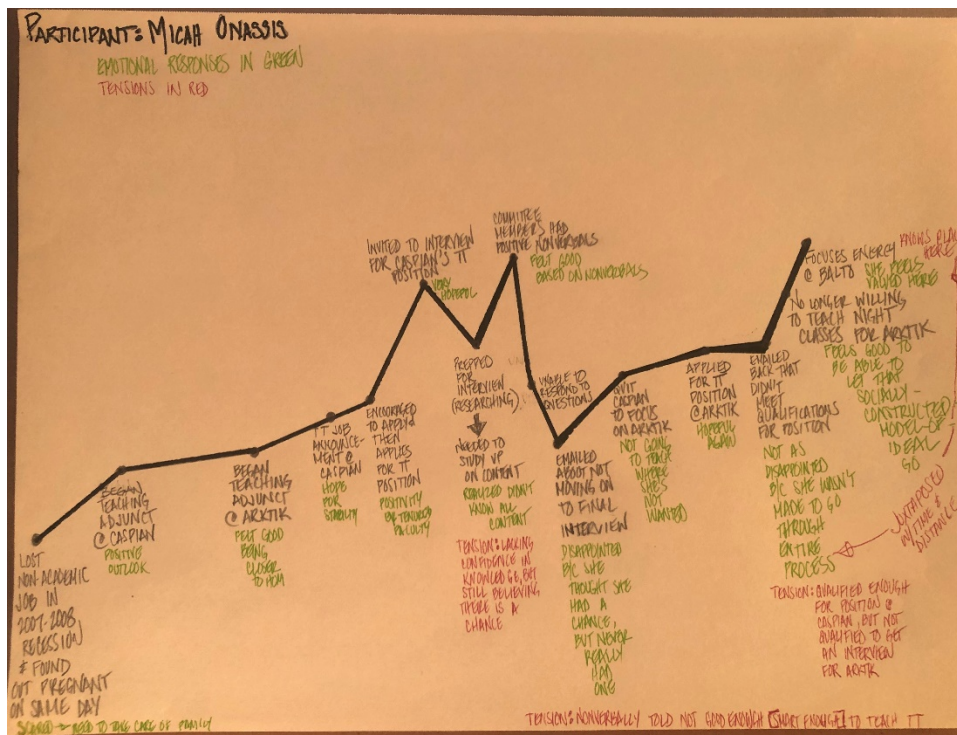 PARTICIPANT: MICAH ONASSIS
EMOTIONAL RESPONSES IN GREEN
TENSIONS IN RED
LOST
NON-ACADEMIC
JOB IN
2007-2008
RECESSION
& FOUND
OUT PREGNANT
ON SAME DAY
SCARED - NEED TO TAKE CARE OF FAMILY
BEGAN
TEACHING
ADJUNCT
@ CASPIAN
POSITIVE
OUTLOOK
BEGAN
TEACHING
ADJUNCT
@ ARKTIK
FELT GOOD
BEING
CLOSER
TO HOM
TT JOB
ANNOUNCE-
MENT @
CASPIAN
HOPE
FOR
STABILITY
ENCOURAGED
TO APPLY &
THEN
APPLIES
FOR TT
POSITION
POSITIVITY
BY TENURED
FACULTY
INVITED TO INTERVIEW
FOR CASPIAN'S TT
POSITION
VERY
HOPEFUL
PREPPED
FOR
INTERVIEW
(RESEARCHING)
NEEDED TO
STUDY UP
ON CONTENT
REALIZED DIDN'T
KNOW ALL
CONTENT
TENSION: LACKING
CONFIDENCE IN
KNOWLEDGE, BUT
STILL BELIEVING
THERE IS A
CHANCE
COMMITTEE
MEMBERS HAD
POSITIVE NONVERBALS
FELT GOOD
BASED ON NONVERBALS
UNABLE TO
RESPOND TO
QUESTIONS
EMAILED
ABOUT NOT
MOVING ON
TO FINAL
INTERVIEW
DISAPPOINTED
B/C SHE
THOUGHT SHE
HAD A
CHANCE,
BUT NEVER
REALLY
HAD
ONE
QUIT
CASPIAN
TO FOCUS
ON ARKTIK
NOT GOING
TO TEACH
WHERE
SHE'S
NOT
WANTED
APPLIED
FOR TT
POSITION
@ ARKTIK
HOPEFUL
AGAIN
EMAILED
BACK THAT
DIDN'T
MEET
QUALIFICATIONS
FOR POSITION
NOT AS
DISAPPOINTED
B/C SHE WASN'T
MADE TO GO
THROUGH
ENTIRE
PROCESS
TENSION: QUALIFIED ENOUGH
FOR POSITION @
CASPIAN, BUT NOT
QUALIFIED TO GET
AN INTERVIEW
FOR ARKTIK
FOCUSES ENERGY
@ BALTO
SHE FEELS
VALUED HERE
KNOWS PLAC
HERE
NO LONGER WILLING
TO TEACH NIGHT
CLASSES FOR ARKTIK
FEELS GOOD TO
BE ABLE TO
LET THAT
SOCIALLY-
CONSTRUCTED
MODEL OF
IDEAL
GO
JUXTAPOSED
W/ TIME &
DISTANCE
TENSION: NONVERBALLY TOLD NOT GOOD ENOUGH [SMART ENOUGH] TO TEACH TT